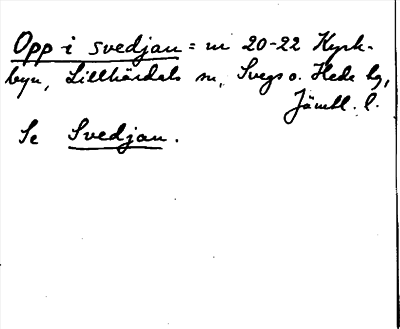 Opp i svedjan = nr 20-22 Kyrk-
byn, Lillhärdals sn, Svegs o. Hede tg,
Jämtl. l.
Se Svedjan.